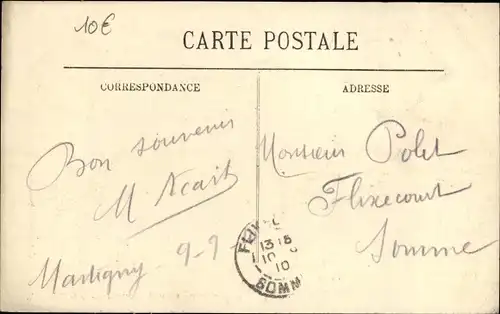 10€
CARTE POSTALE
CORRESPONDANCE
ADRESSE
Bon souvenir
M
Martigny 9-9
Monsieur Polet
Flixecourt
Somme
13 15
10
10
SOMM